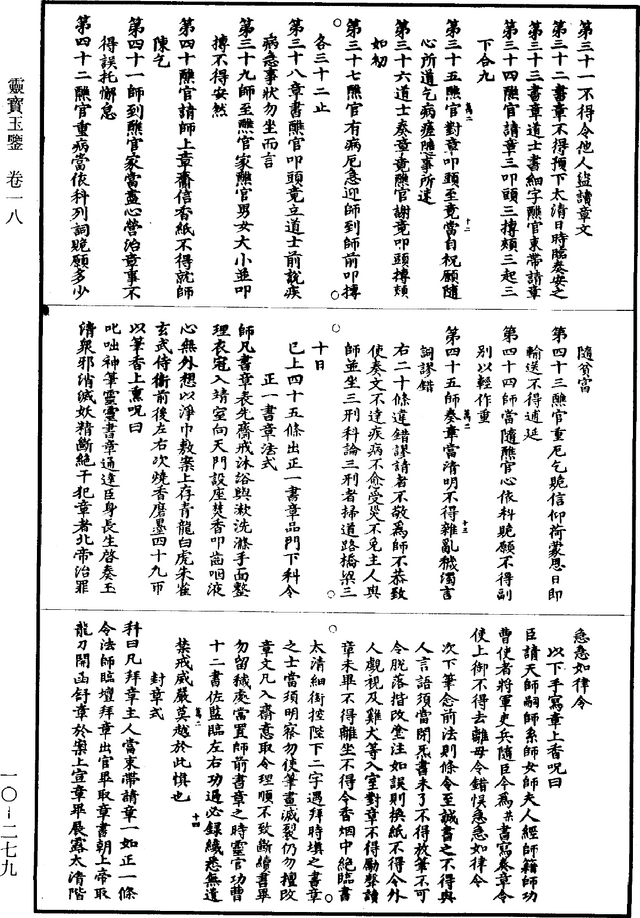 靈寶玉鑒 卷一八
一〇-二七九
第三十一不得令他人盜讀章文
第三十二書章不得預下太清日時臨奏安之
第三十三書章道士書細字醮官束帶請章
第三十四醮官請章三叩頭三搏頰三起三
下合九
第三十五醮官對章叩頭至竟當自祝願隨
心所道乞病瘥隱事所迷
第三十六道士奏章竟醮官謝竟叩頭搏頰
如初
第三十七醮官有病厄急迎師到師前叩搏
各三十二止
第三十八章書醮官叩頭竟立道士前說疾
病急事狀勿坐而言
第三十九師至醮官家醮官男女大小並叩
搏不得安然
第四十醮官請師上章齎信香紙不得就師
陳乞
第四十一師到醮官家當盡心營治章事不
得誤托懈怠
第四十二醮官重病當依科列詞賧願多少
隨貧富
第四十三醮官重厄乞賧信仰荷蒙恩日即
輸送不得逋延
第四十四師當隨醮官心依科賧願不得副
別以輕作重
第四十五師奏章當清明不得雜亂穢濁言
詞謬錯
右二十條違錯謬請者不敬為師不恭致
使奏文不達疾病不愈受災不免主人與
師並坐三刑科論三刑者掃道路橋梁三
十日
已上四十五條出正一書章品門下科令
正一書章法式
師凡書章表先齋戒沐浴與漱洗滌手面整
理衣冠入靖室向天門設座焚香叩齒咽液
心無外想以淨巾敷案上存青龍白虎朱雀
玄武侍衛前後左右次燒香磨墨四十九帀
以筆香上熏呪曰
叱咄神筆靈靈書章通達臣身長生啓奏玉
清衆邪消滅妖精斷絕干犯章者北帝治罪
急急如律令
以下手寫章上香呪曰
臣請天師嗣師系師女師夫人經師籍師功
曹使者將軍吏兵隨臣今為某書寫奏章令
使上御不得去離毋令錯悞急急如律令
次下筆念前法則條令至誠書之不得與
人言語須當閉炁書未了不得放筆不可
令脫落揩改塗注如誤則換紙不得令外
人觀視及雞犬等入室對章不得勵聲讀
章未畢不得離坐不得令香烟中絕臨書
太清細銜控陛下二字遇拜時填之書章
之士當須明察勿使筆畫減裂仍勿擅改
章文凡入齋意取令理順不致斷續書畢
勿留穢處當置師前書章之時靈官功曹
十二書佐監臨左右功過必録纖悉無遺
禁戒威嚴莫越於此慎也
封章式
科曰凡拜章主人當束帶請章一如正一條
令法師臨壇拜章出官畢取章書朝上帝取
龍刀開函舒章於案上宣章畢展露太清階